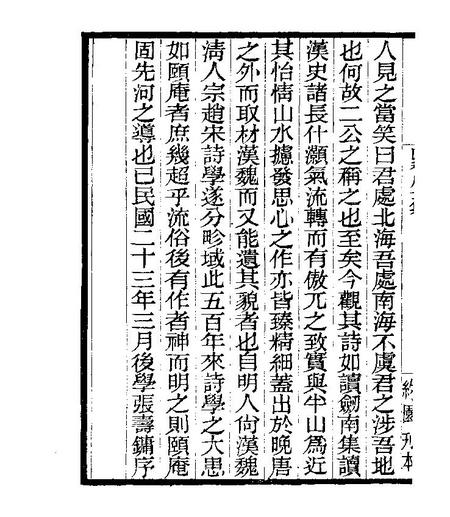 人見之當笑曰君處北海吾處南海不虞君之涉吾地
也何故二公之稱之也至矣今觀其詩如讀劒南集讀
漢史諸長什灝氣流轉而有傲兀之致實與半山爲近
其怡情山水攄發思心之作亦皆臻精細蓋出於晚唐
之外而取材漢魏而又能遺其貌者也自明人尙漢魏
淸人宗趙宋詩學遂分畛域此五百年來詩學之大患
如頤庵者庶幾超乎流俗後有作者神而明之則頤庵
固先河之導也已民國二十三年三月後學張壽鏞序
約園刊本